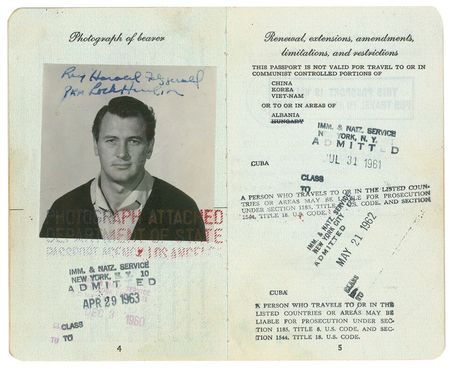 Photograph of bearer
Roy Harold Fitzgerald
AKA Rock Hudson
PHOTOGRAPH ATTACHED
DEPARTMENT OF STATE
PASSPORT AGENCY LOS ANGELES
IMM. & NATZ. SERVICE
NEW YORK, N.Y. 10
ADMITTED
APR 29 1963
DEC 3 1960
CLASS
TO TO
4
Renewal, extensions, amendments,
limitations, and restrictions
THIS PASSPORT IS NOT VALID FOR TRAVEL TO OR IN
COMMUNIST CONTROLLED PORTIONS OF
CHINA
KOREA
VIET-NAM
OR TO OR IN AREAS OF
ALBANIA
HUNGARY
IMM. & NATZ. SERVICE
NEW YORK, N.Y.
ADMITTED
JUL 31 1961
CUBA
CLASS
TO
A PERSON WHO TRAVELS TO OR IN THE LISTED COUN-
TRIES OR AREAS MAY BE LIABLE FOR PROSECUTION
UNDER SECTION 1185, TITLE 8, U.S. CODE, AND SECTION
1544, TITLE 18, U.S. CODE.
IMM. & NATZ. SERVICE
NEW YORK CITY
ADMITTED
MAY 21 1962
CLASS
TO
CUBA
A PERSON WHO TRAVELS TO OR IN THE
LISTED COUNTRIES OR AREAS MAY BE
LIABLE FOR PROSECUTION UNDER SEC-
TION 1185, TITLE 8, U.S. CODE, AND SEC-
TION 1544, TITLE 18, U.S. CODE.
5